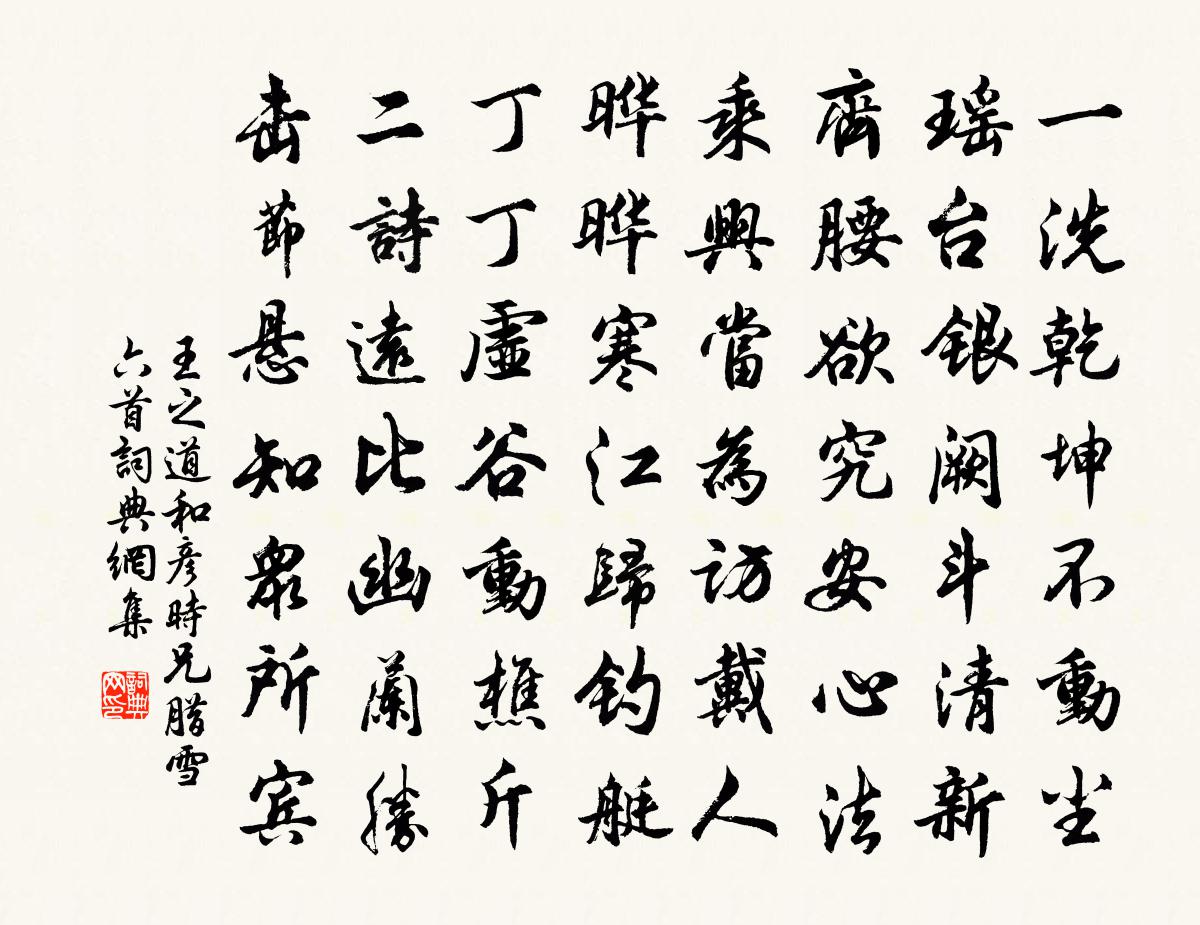 一洗乾坤不動尘
瑶台銀阙斗清新
齊腰欲究安心法
乘興當為訪戴人
晔晔寒江歸钓艇
丁丁虛谷動樵斤
二詩遠比幽蘭勝
击節悬知眾所宾
王之道和彦時兄腊雪
六首詞典網集
詞典网印